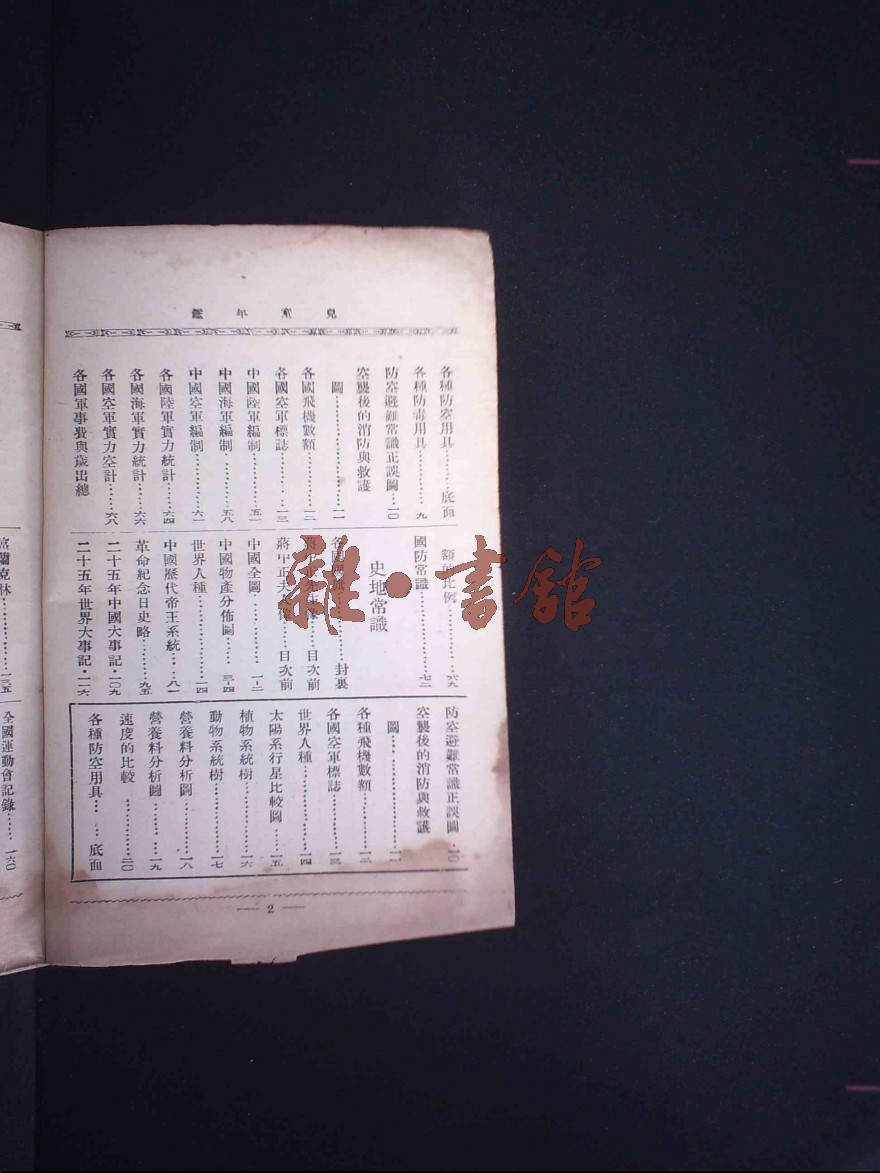 兒童年鑑
各種防空用具……… 底面
各種防毒用具………… 九
防空避難常識正誤圖…一〇
空襲後的消防與救護
圖………………一一
各國飛機數額………一二
各國空軍標誌………一三
中國陸軍編制………五一
中國海軍編制………五八
中國空軍編制………六一
各國陸軍實力統計……六四
各國海軍實力統計……六六
各國空軍實力空計……六八
各國軍事費與歲出總
額的比例…………六九
國防常識…………七二
史地常識
封裏
目次前
目次前
中國全圖…………一-二
中國物產分佈圖……三-四
世界人種…………一四
中國歷代帝王系統……八一
革命紀念日史略………九五
二十五年中國大事記・一〇九
二十五年世界大事記・一一六
防空避難常識正誤圖・一〇
空襲後的消防與救護
圖………………一一
各種飛機數額………一二
各國空軍標誌………一三
世界人種……………一四
太陽系行星比較圖……一五
植物系統樹…………一六
動物系統樹…………一七
營養料分析圖………一八
營養料分析圖………一九
速度的比較…………二〇
各種防空用具…… 底面
— 2 —
富蘭克林……………一三五
全國運動會記錄……一六〇
雜・書館